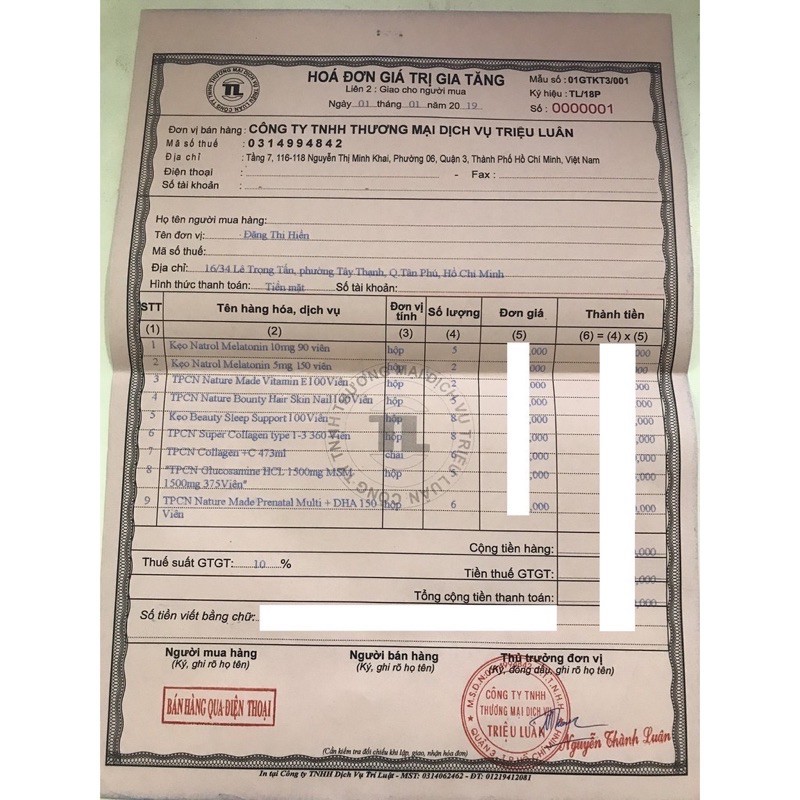 HOÁ ĐƠN GIÁ TRỊ GIA TĂNG
Liên 2 : Giao cho người mua
Ngày 01 tháng 01 năm 2019
Mẫu số : 01GTKT3/001
Ký hiệu : TL/18P
Số : 0000001
Đơn vị bán hàng : CÔNG TY TNHH THƯƠNG MẠI DỊCH VỤ TRIỆU LUÂN
Mã số thuế : 0314994842
Địa chỉ : Tầng 7, 116-118 Nguyễn Thị Minh Khai, Phường 06, Quận 3, Thành Phố Hồ Chí Minh, Việt Nam
Điện thoại : - Fax :
Số tài khoản :
Họ tên người mua hàng:
Tên đơn vị: Đặng Thi Hiền
Mã số thuế:
Địa chỉ: 16/34 Lê Trọng Tấn, phường Tây Thạnh, Q.Tân Phú, Hồ Chí Minh
Hình thức thanh toán: Tiền mặt Số tài khoản:
STT Tên hàng hóa, dịch vụ Đơn vị tính Số lượng Đơn giá Thành tiền
(1) (2) (3) (4) (5) (6) = (4) x (5)
1 Kẹo Natrol Melatonin 10mg 90 viên hộp 5 ,000 ,000
2 Kẹo Natrol Melatonin 5mg 150 viên hộp 2 ,000 ,000
3 TPCN Nature Made Vitamin E100Viên hộp 2 ,000 ,000
4 TPCN Nature Bounty Hair Skin Nail110 Viên hộp 2 ,000 ,000
5 Kẹo Beauty Sleep Support 100Viên hộp 8 ,000 ,000
6 TPCN Super Collagen type 1-3 360 Viên hộp 8 ,000 ,000
7 TPCN Collagen +C 473ml chai 6 ,000 ,000
8 "TPCN Glucosamine HCL 1500mg MSM hộp ,000 ,000
1500mg 375Viên"
9 TPCN Nature Made Prenatal Multi + DHA 150 hộp 6 ,000 ,000
Viên
Cộng tiền hàng: ,000
Thuế suất GTGT: 10 % Tiền thuế GTGT: ,000
Tổng cộng tiền thanh toán: ,000
Số tiền viết bằng chữ:
Người mua hàng Người bán hàng Thủ trưởng đơn vị
(Ký, ghi rõ họ tên) (Ký, ghi rõ họ tên) (Ký, đóng dấu, ghi rõ họ tên)
BÁN HÀNG QUA ĐIỆN THOẠI
CÔNG TY TNHH
THƯƠNG MẠI DỊCH VỤ
TRIỆU LUÂN
Nguyễn Thành Luân
(Cần kiểm tra đối chiếu khi lập, giao, nhận hóa đơn)
In tại Công ty TNHH Dịch Vụ Trí Luật - MST: 0314062462 - ĐT: 01219412081